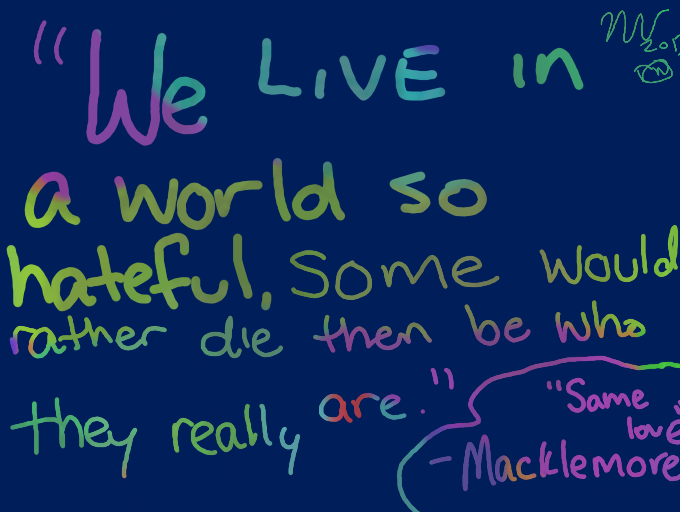 "We LIVE in
a world so
hateful, Some would
rather die then be who
they really are."
"Same
love
- Macklemore